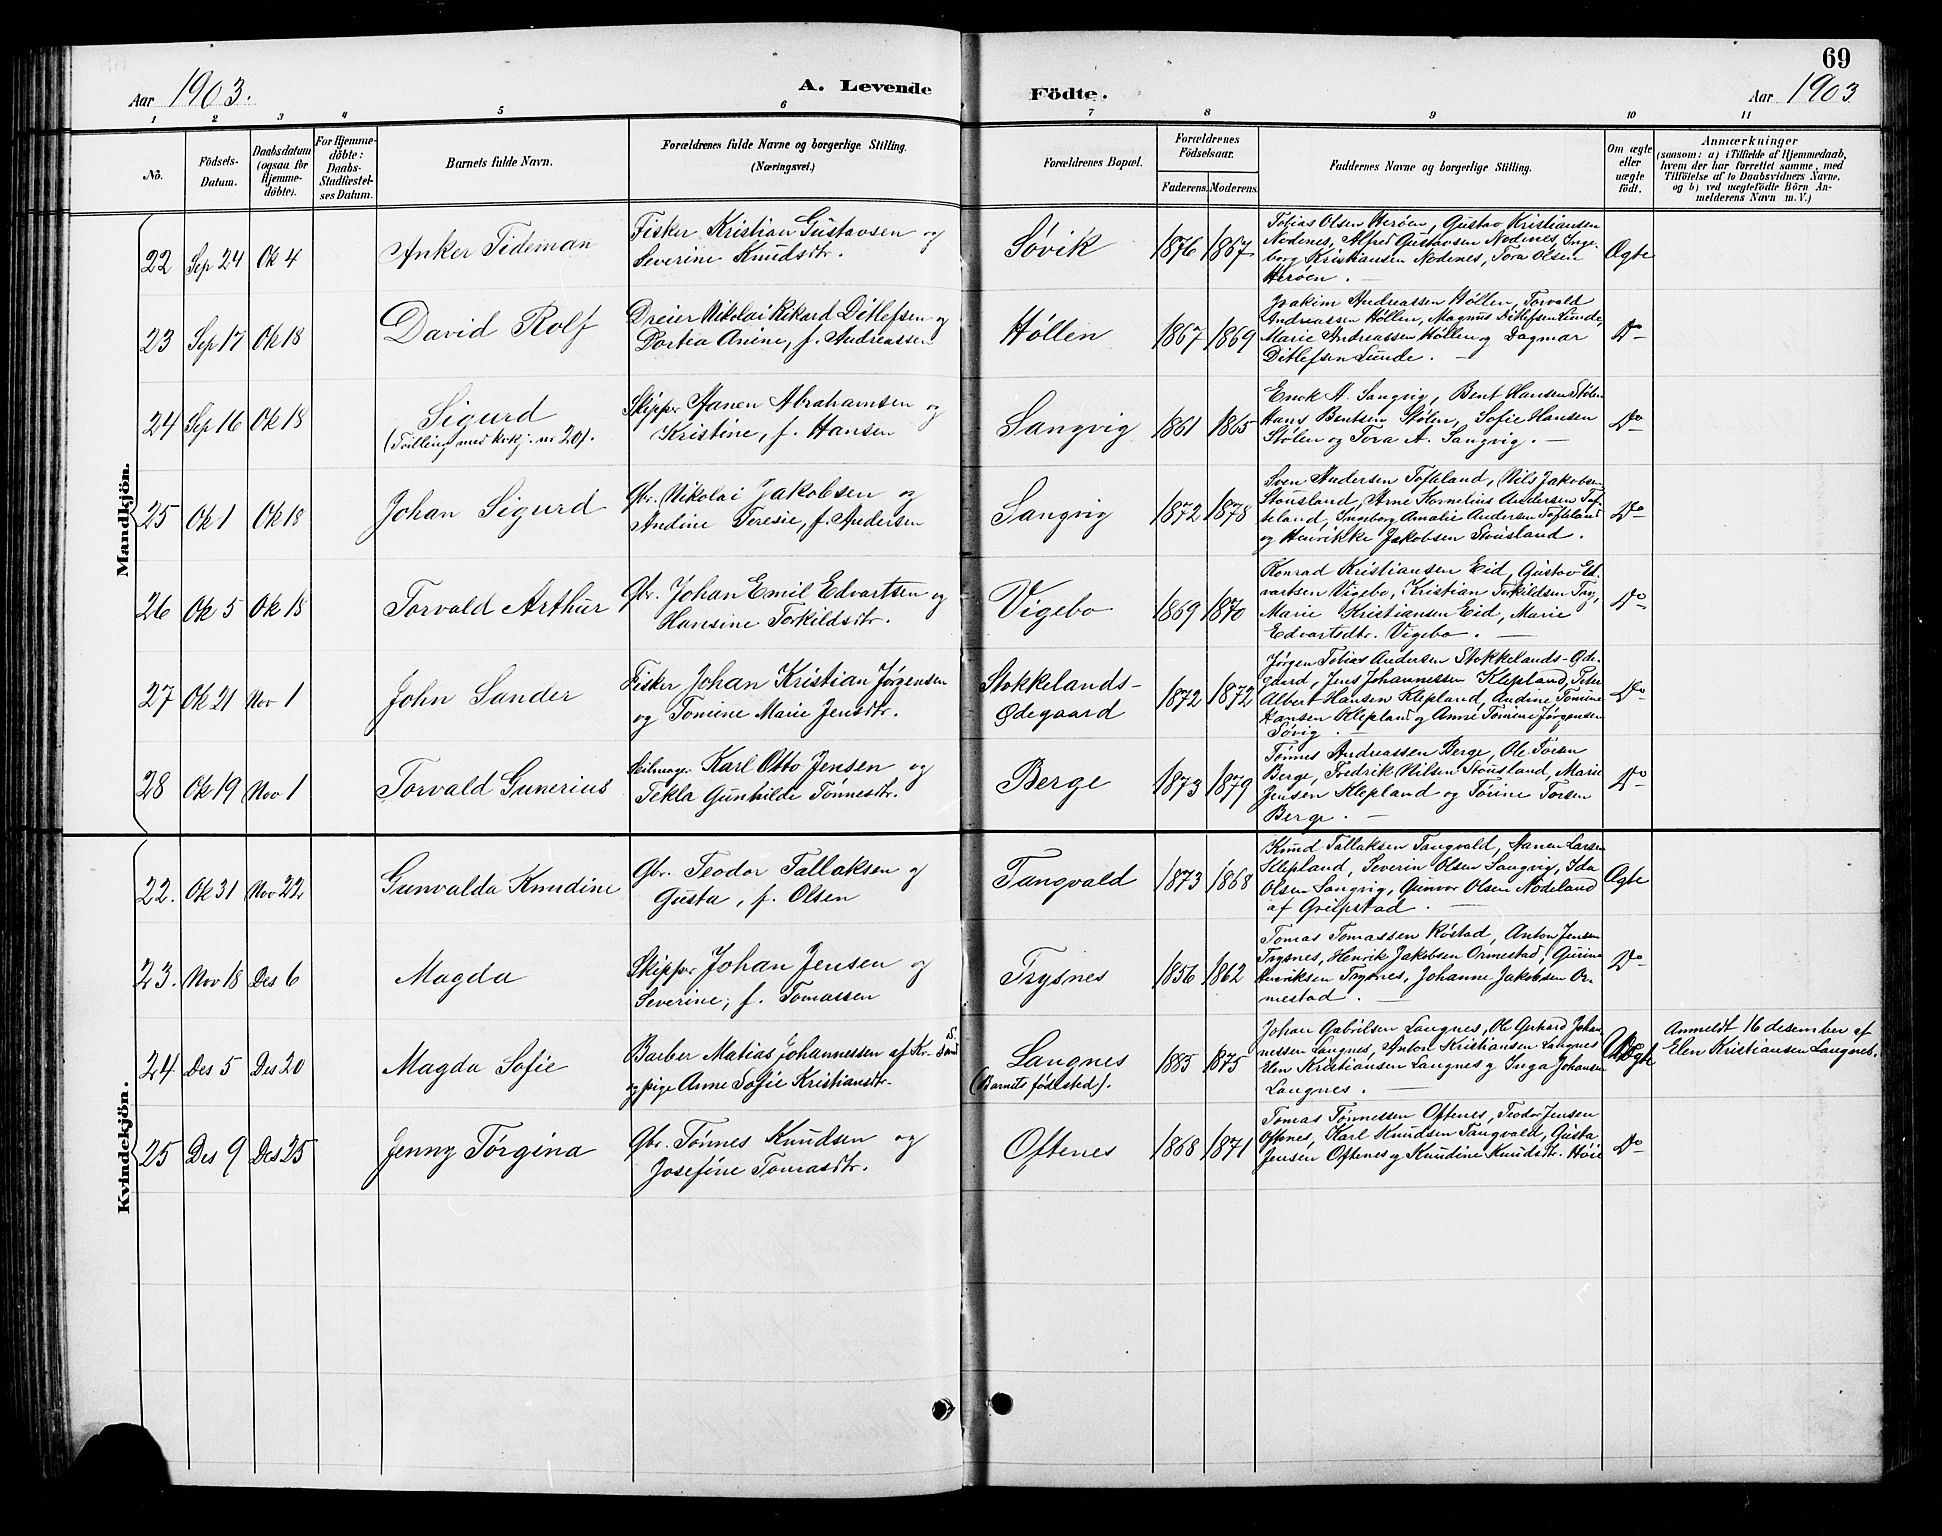 69
Aar 1903.
A. Levende
Födte.
Aar 1903
1 2 3 4 5 6 7 8 9 10 11
No.
Födsels-
Datum.
Daabsdatum
(ogsaa for
Hjemme-
döbte).
For Hjemme-
döbte:
Daabs-
Stadfæstel-
ses Datum.
Barnets fulde Navn.
Forældrenes fulde Navne og borgerlige Stilling.
(Næringsvei.)
Forældrenes Bopæl.
Forældrenes
Födselsaar.
Faderens. Moderens.
Faddernes Navne og borgerlige Stilling.
Om ægte
eller
uægte
födt.
Anmærkninger
(saasom: a) i Tilfælde af Hjemmedaab,
hvem der har forrettet samme, med
Tilföielse af to Daabsvidners Navne,
og b) ved uægtefödte Börn An-
melderens Navn m. V.)
Mandkjön.
22 Sep 24 Ok 4
Anker Tideman
Fisker Kristian Gustavsen og
Severine Knudsdtr.
Søvik
1876 1867
Tobias Olsen Herøen, Gustav Kristiansen
Nodenes, Alfred Gustavsen Nodenes, Inge-
borg Kristiansen Nodenes, Tora Olsen
Herøen
Ægte
23 Sep 17 Ok 18
David Rolf
Dreier Nikolai Rikard Ditlefsen og
Dortea Anine, f. Andreassen
Høllen
1867 1869
Joakim Andreassen Høllen, Torvald
Andreassen Høllen, Magnus Ditlefsen Lunde,
Marie Andreassen Høllen og Dagmar
Ditlefsen Lunde.
Do
24 Sep 16 Ok 18
Sigurd
(Tvilling med kvkj. nr 20).
Skipper Aanen Abrahamsen og
Kristine, f. Hansen
Sangvig
1861 1865
Enok A. Sangvig, Bent Hansen Stølen
Hans Bentsen Stølen, Sofie Hansen
Stølen og Tora A. Sangvig.
Do
25 Ok 1 Ok 18
Johan Sigurd
Gbr. Nikolai Jakobsen og
Andine Teresie, f. Andersen
Sangvig
1872 1878
Sven Andersen Tofteland, Nils Jakobsen
Stousland, Arne Kornelius Andersen Tof-
teland, Ingeborg Amalie Andersen Tofteland
og Henrikke Jakobsen Stousland.
Do
26 Ok 5 Ok 18
Torvald Arthur
Gbr. Johan Emil Edvartsen og
Hansine Torkildsdtr.
Vigebo
1869 1870
Konrad Kristiansen Eid, Gustav Ed-
vartsen Vigebo, Kristian Torkildsen Try,
Marie Kristiansen Eid, Marie
Edvartsdtr. Vigebo.
Do
27 Ok 21 Nov 1
John Sander
Fisker Johan Kristian Jørgensen
og Tomine Marie Jensdtr.
Stokkelands-
Ødegaard
1872 1872
Jørgen Tobias Andersen Stokkelands-Øde-
gaard, Jens Johannessen Klepland, Peter
Albert Hansen Klepland, Andine Tomine
Hansen Klepland og Anne Tomine Jørgensen
Søvig.
Do
28 Ok 19 Nov 1
Torvald Gunerius
Seilmager Karl Otto Jensen og
Tekla Gunhilde Tønnesdtr.
Berge
1873 1879
Tønnes Andreassen Berge, Ole Torsen
Berge, Fredrik Nilsen Stousland, Marie
Jensen Klepland og Torine Torsen
Berge.
Do
Kvindekjön.
22. Ok 31 Nov 22
Gunvalda Knudine
Gbr. Teodor Tallaksen og
Gusta, f. Olsen
Tangvald
1873 1868
Knud Tallaksen Tangvald, Aanen Larsen
Klepland, Severin Olsen Sangvig, Ida
Olsen Sangvig, Gunvor Olsen Nodeland
af Greipstad.
Ægte
23. Nov 18 Des 6
Magda
Skipper Johan Jensen og
Severine, f. Tomassen
Trysnes
1856 1862
Tomas Tomassen Røstad, Anton Jensen
Trysnes, Henrik Jakobsen Ormestad, Gurine
Henriksen Trysnes, Johanne Jakobsen Or-
mestad.
Do
24 Des 5 Des 20
Magda Sofie
Barber Matias Johannessen af Kr.Sand S.
og pige Anne Sofie Kristiansdtr.
Langnes
(Barnets fødested).
1885 1875
Johan Gabrielsen Langnes, Ole Gerhard Johan-
nessen Langnes, Anton Kristiansen Langnes
Elen Kristiansen Langnes og Inga Johansen
Langnes.
Uægte
Anmeldt 16 desember af
Elen Kristiansen Langnes.
25 Des 9 Des 25
Jenny Torgina
Gbr. Tønnes Knudsen og
Josefine Tomasdtr.
Oftenes
1868 1871
Tomas Tønnessen Oftenes, Teodor Jensen
Oftenes, Karl Knudsen Tangvald, Gusta
Jensen Oftenes og Knudine Knudsdtr. Høie
Do